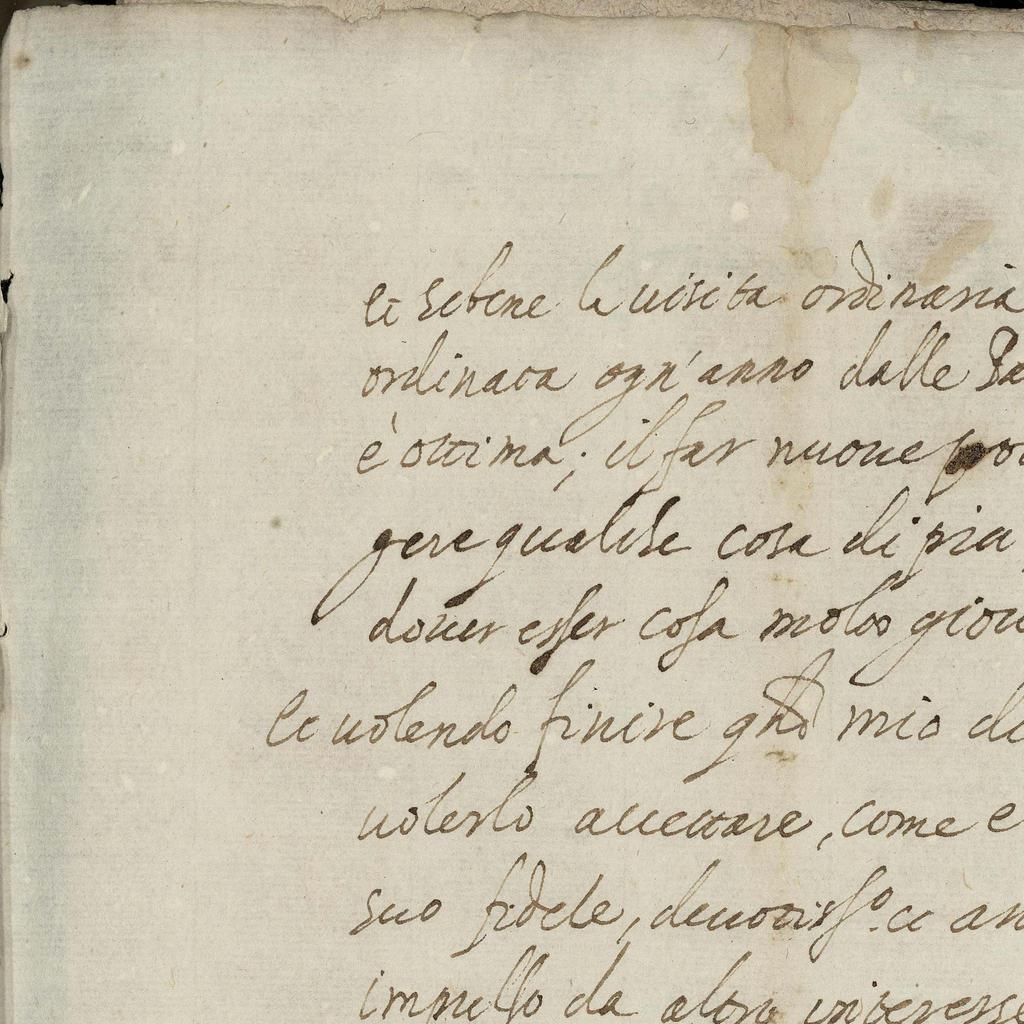 et sebene la uisita ordinaria
ordinata ogn'anno dalle
è ottima; il far nuoue
gere qualche cosa di piu
douer esser cosa molto
et uolendo finire mio
uolerlo accettare, come e
suo fidele, deuotiss.º et
impulso da altro interesse